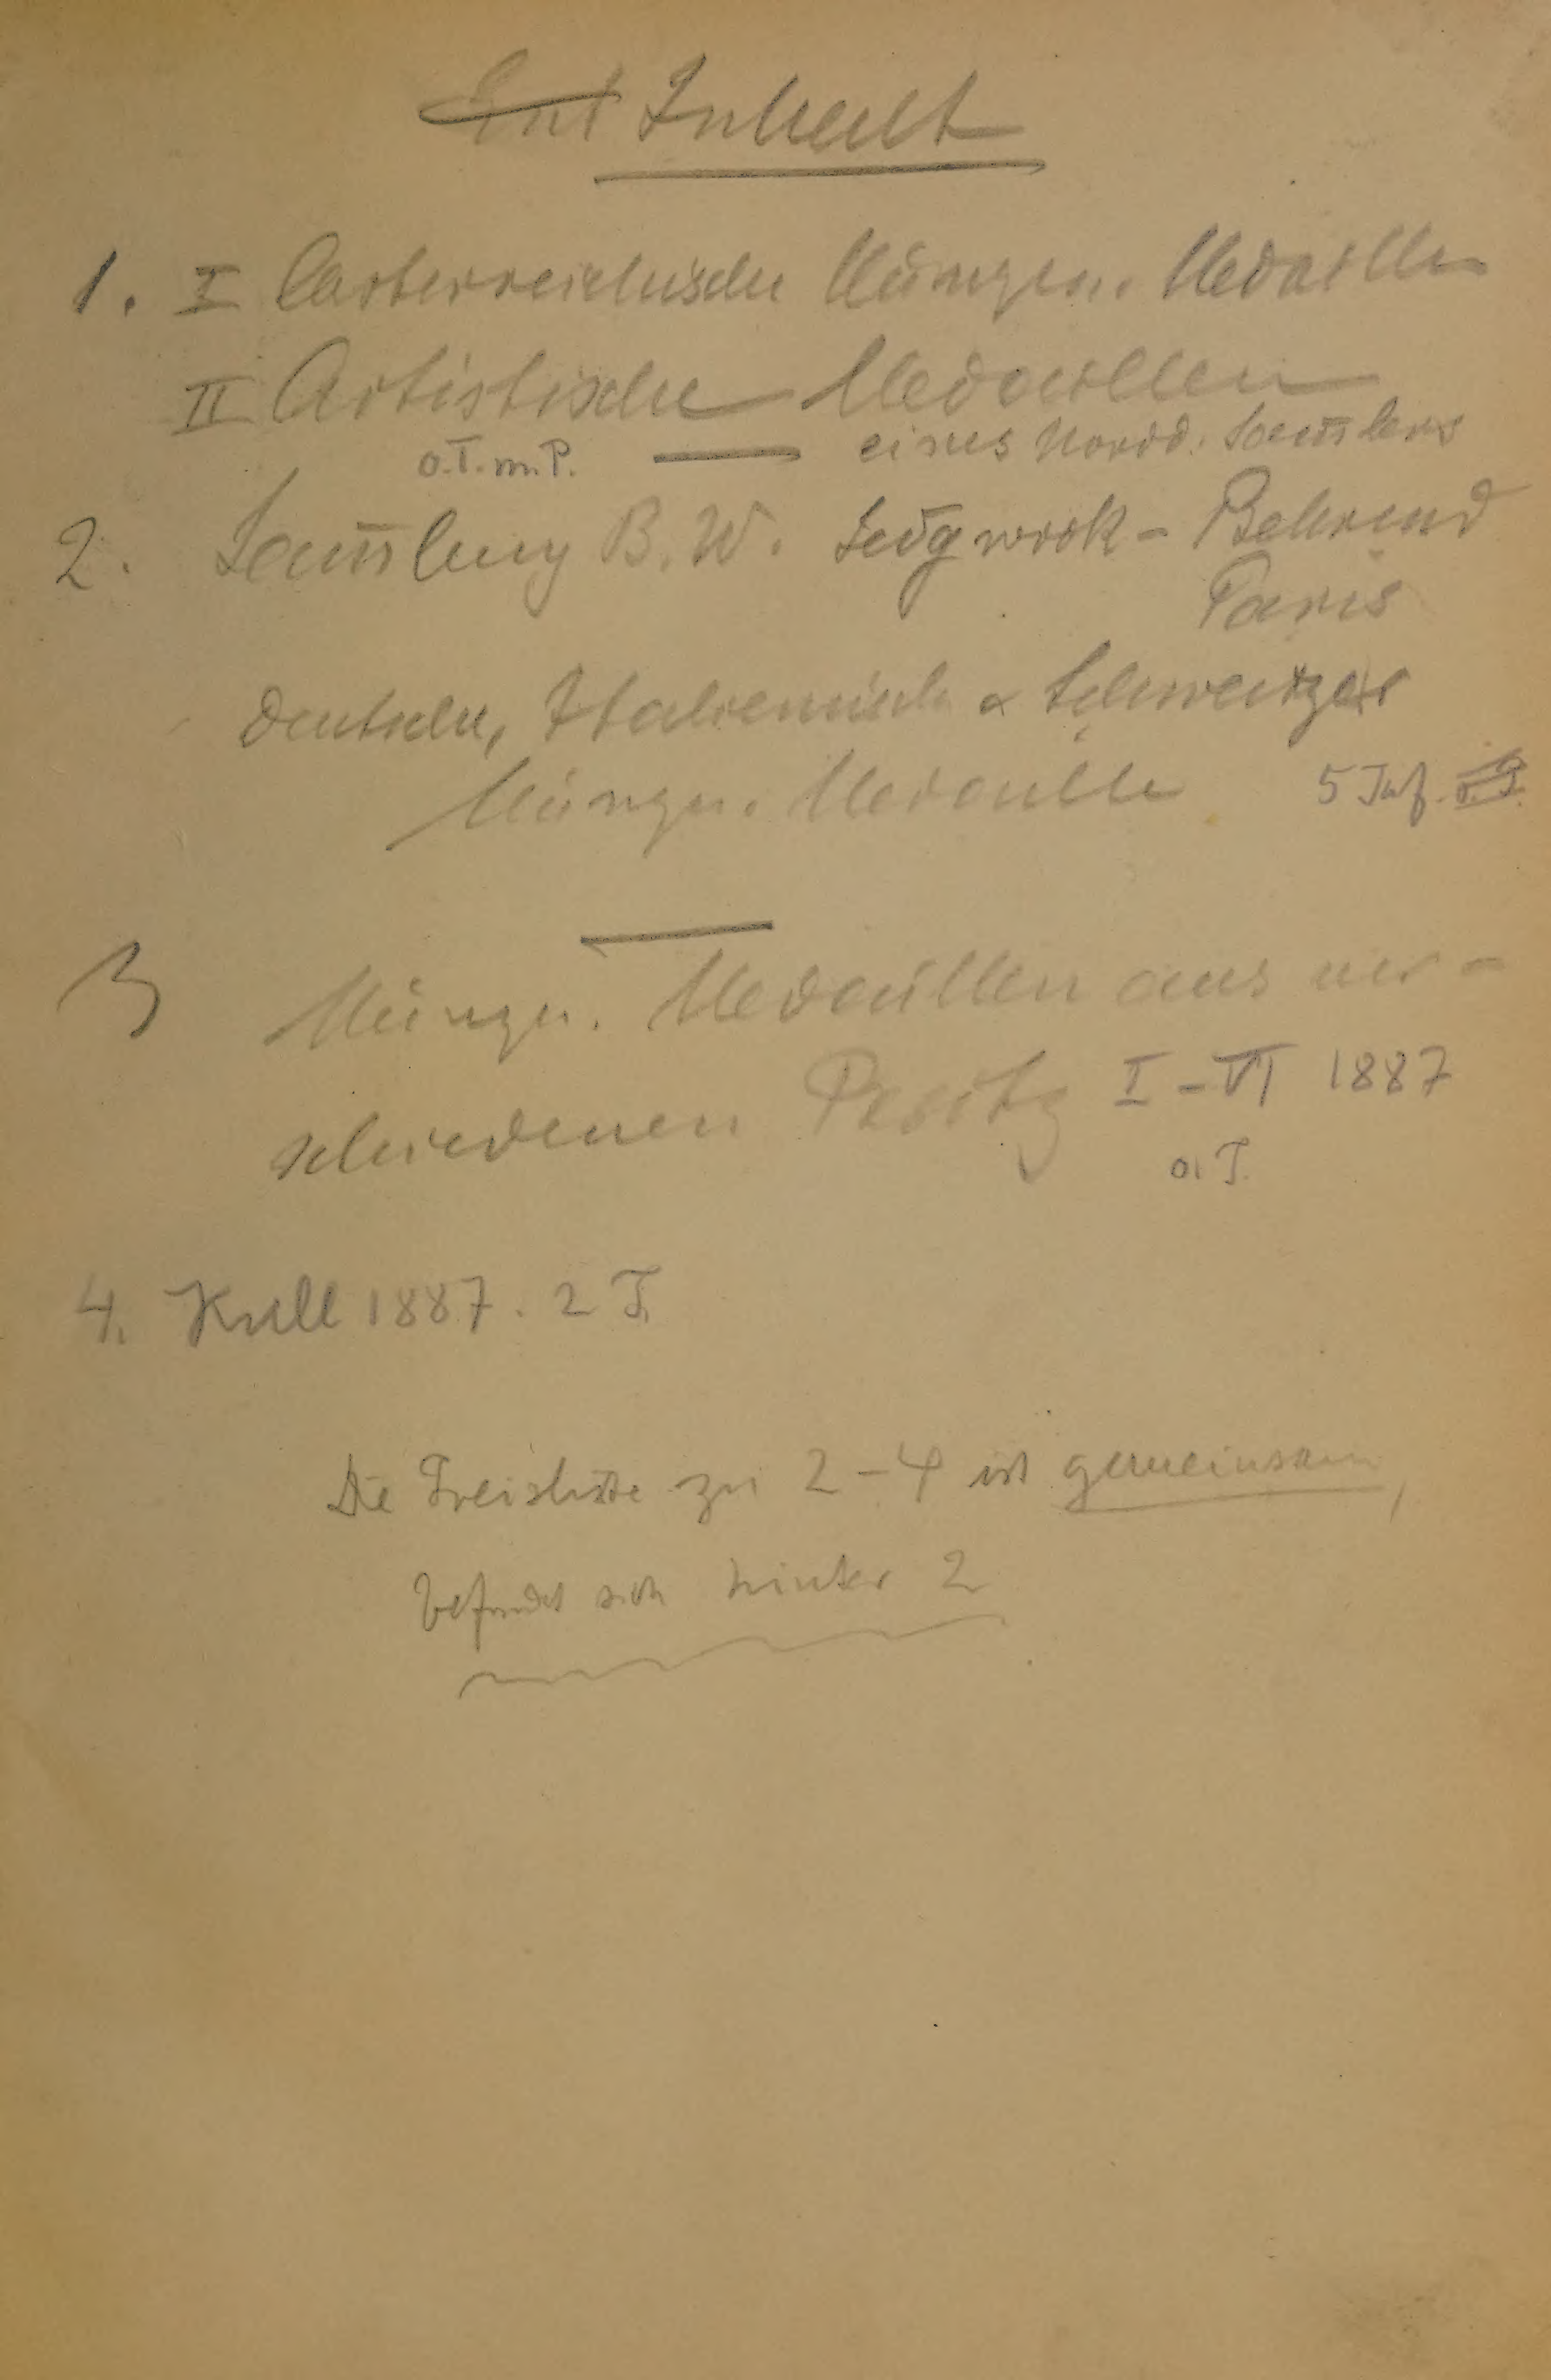 Ent Inhalt
1. I Oesterreichische Münzen. Medaillen
II Artistische Medaillen
o.T.m.P. — eines Nordd. Sam̅lers
2. Sam̅lung B. W. Sedgwick - Behrend
Paris
Deutsche, Italienische & Schweitzer
Münzu. Medaille 5 Taf.
3 Münzu. Medaillen aus ver-
schiedenen Besitz I-VI 1887
o. T.
4. Kull 1887. 2 T.
Die Preisliste zu 2-4 ist gemeinsam,
befindet sich hinter 2